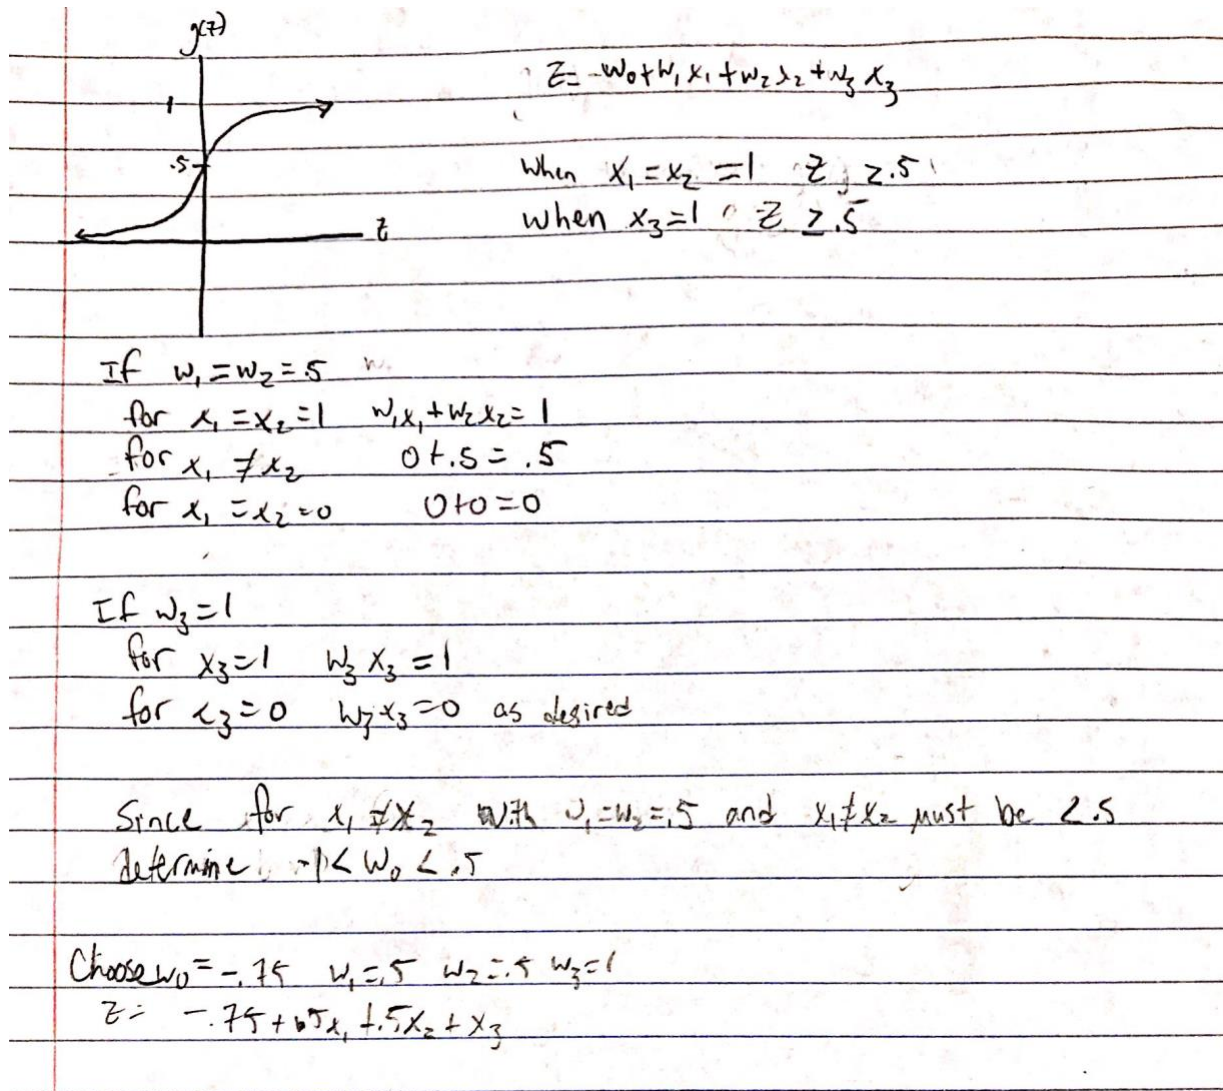 g(z)
z = w₀+w₁x₁+w₂x₂+w₃x₃
1
.5
z
when x₁=x₂=1 z ≥.5
when x₃=1 z ≥.5
If w₁=w₂=.5
for x₁=x₂=1 w₁x₁+w₂x₂=1
for x₁≠x₂ 0+.5=.5
for x₁=x₂=0 0+0=0
If w₃=1
for x₃=1 w₃x₃=1
for x₃=0 w₃x₃=0 as desired
Since for x₁≠x₂ with w₁=w₂=.5 and x₁≠x₂ must be <.5
determine -1<w₀<.5
Choose w₀=-.75 w₁=.5 w₂=.5 w₃=1
z= -.75+.5x₁+.5x₂+x₃